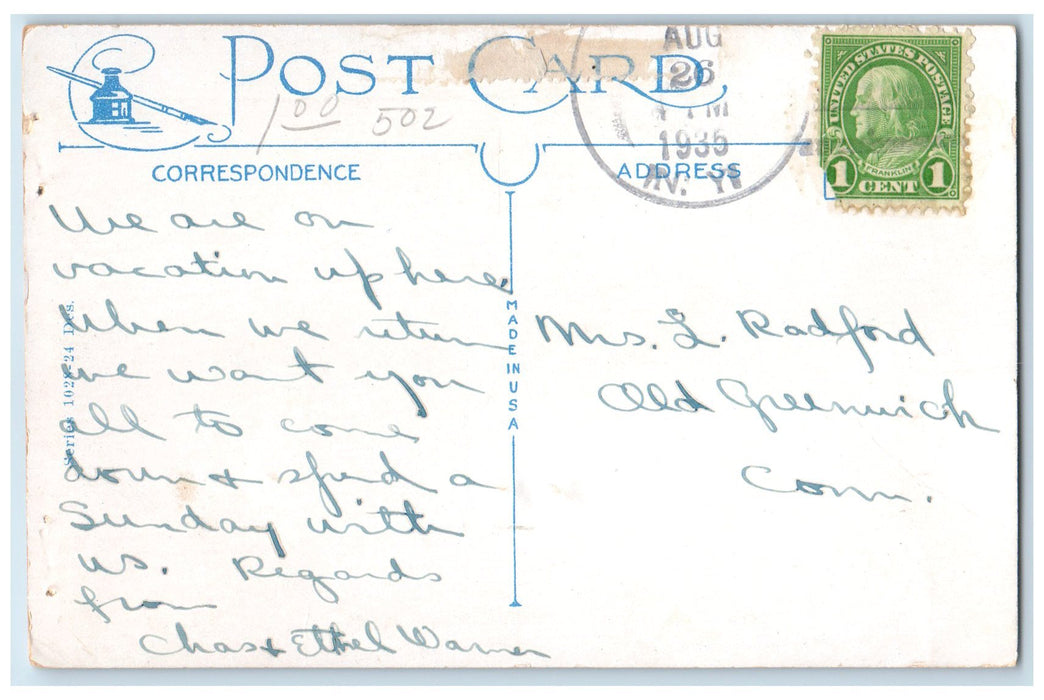 POST CARD
1 00 502
AUG
26
PM
1935
N. Y.
UNITED STATES POSTAGE
FRANKLIN
1 CENT 1
CORRESPONDENCE
ADDRESS
We are on
vacation up here.
When we return
we want you
all to come
down & spend a
Sunday with
us. Regards
from
Chas & Ethel Warner
Series 24 Des.
MADE IN USA
Mrs. L. Radford
Old Greenwich
Conn.